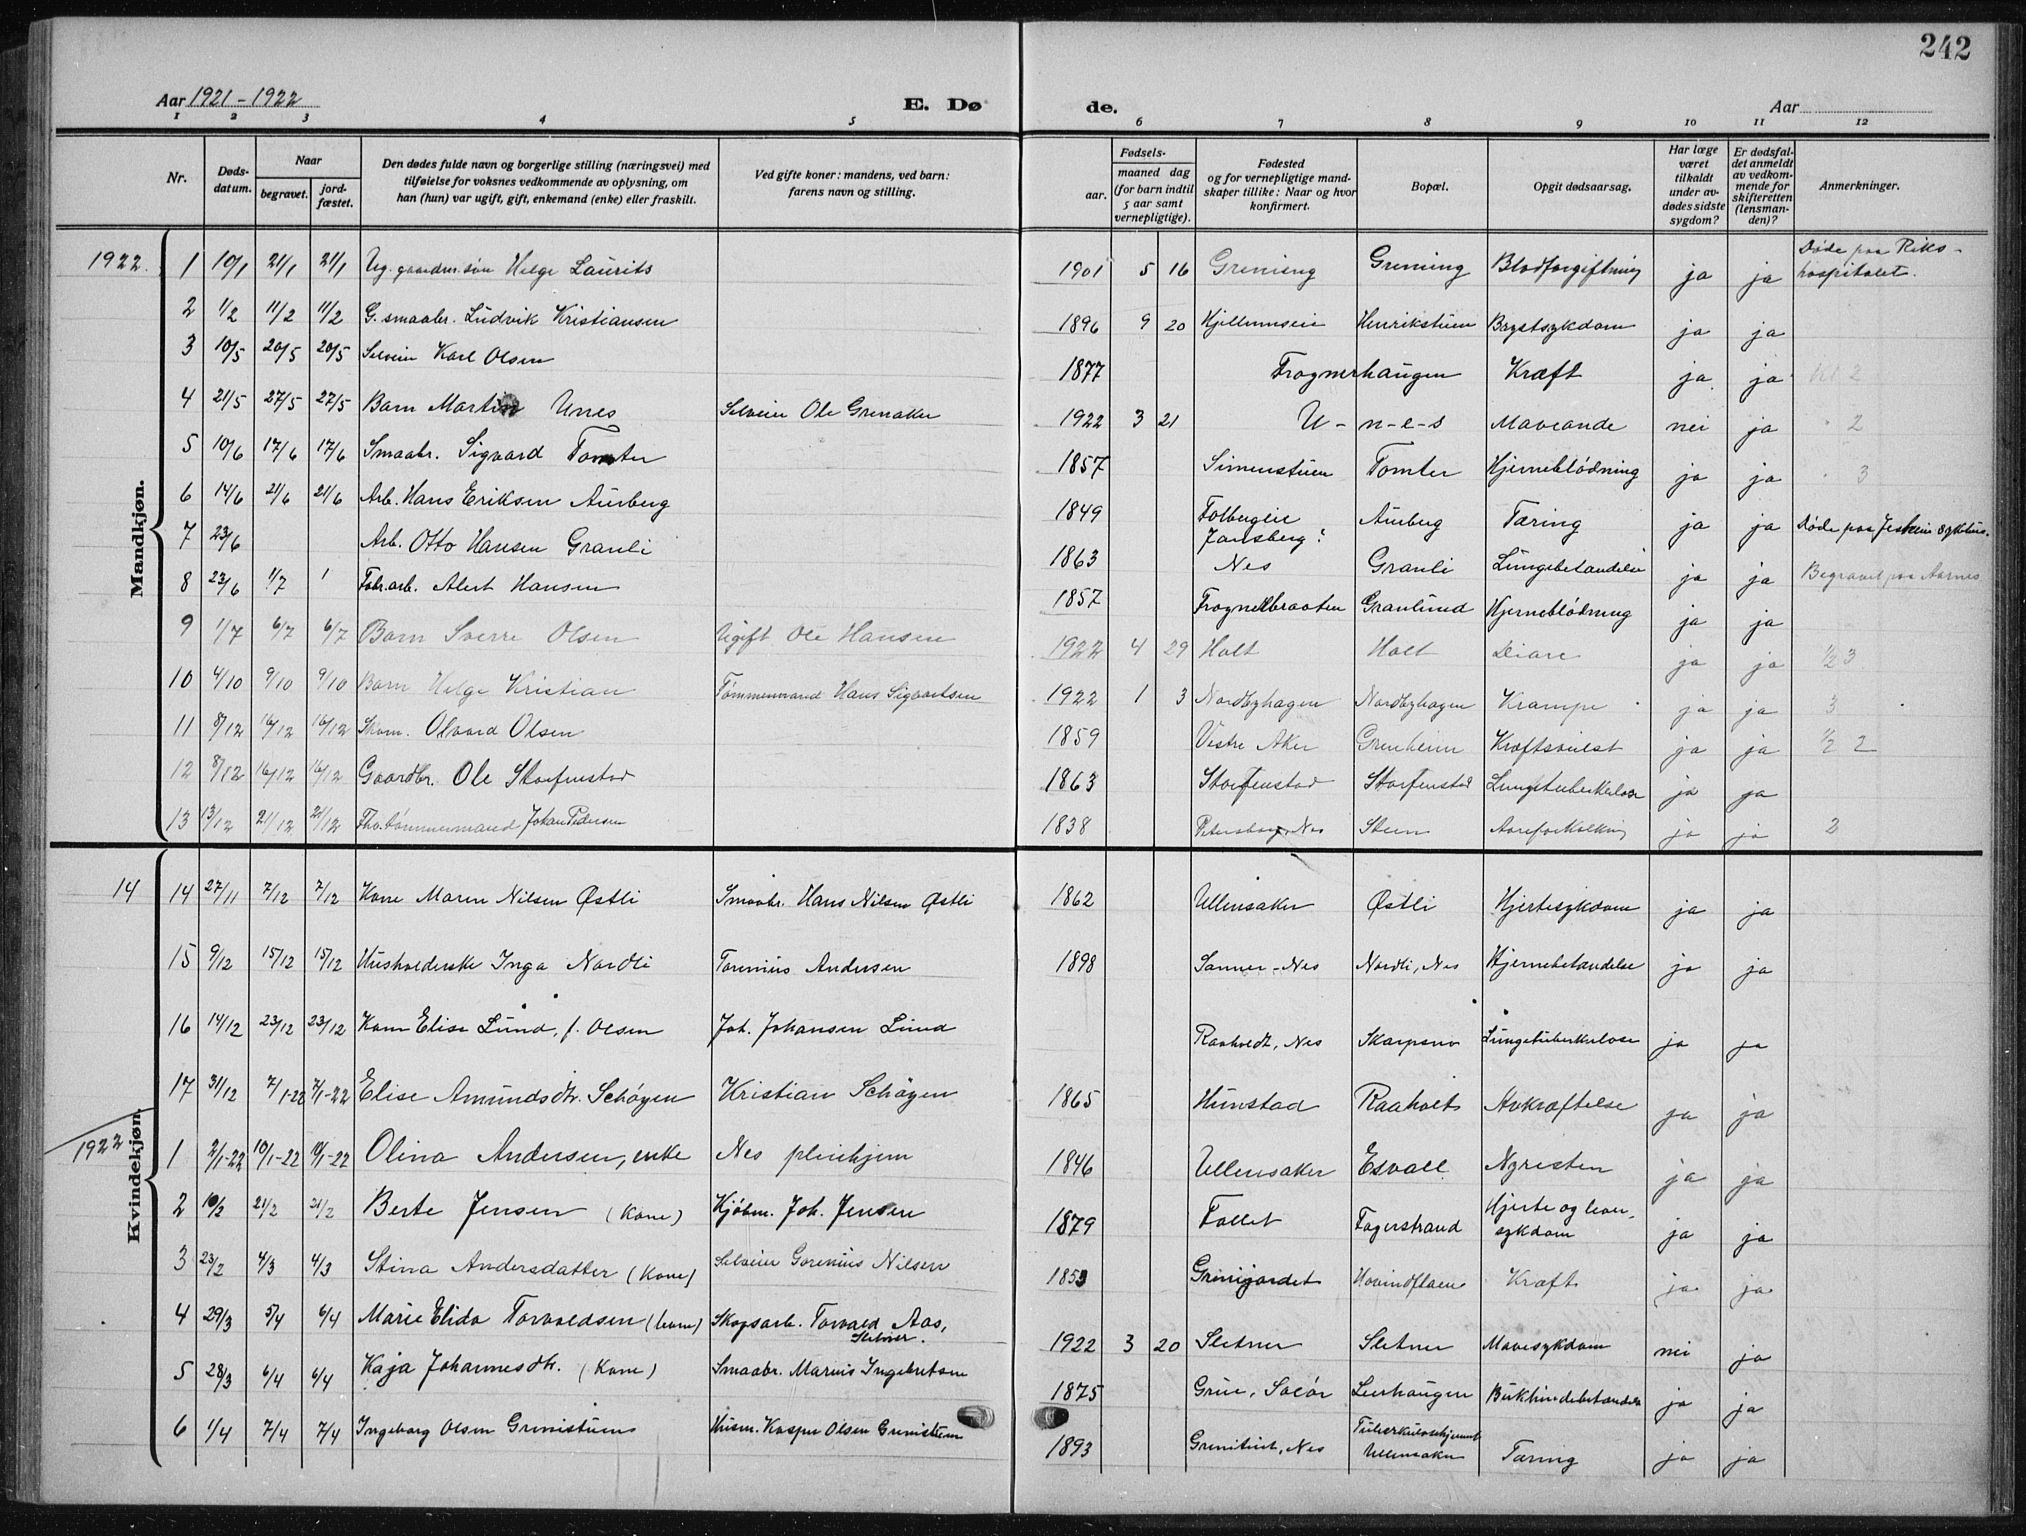 242
Aar 1921-1922 E. Dø de. Aar
1 2 3 4 5 6 7 8 9 10 11 12
Nr. Døds-datum. Naar begravet. jord-fæstet. Den dødes fulde navn og borgerlige stilling (næringsvei) med tilføielse for voksnes vedkommende av oplysning, om han (hun) var ugift, gift, enkemand (enke) eller fraskilt. Ved gifte koner: mandens, ved barn: farens navn og stilling. Fødsels- aar. maaned dag (for barn indtil 5 aar samt vernepligtige). Fødested og for vernepligtige mand-skaper tillike: Naar og hvor konfirmert. Bopæl. Opgit dødsaarsag. Har læge været tilkaldt under av-dødes sidste sygdom? Er dødsfal-det anmeldt av vedkom-mende for skifteretten (lensman-den)? Anmerkninger.
Mandkjøn.
1922. 1 10/1 21/1 21/1 Ug. gaardm.søn Helge Laurits 1901 5 16 Greniseng Grening Blodforgiftning ja ja Døde paa Riks-hospitalet.
2 1/2 11/2 11/2 G. smaabr. Ludvik Kristiansen 1896 9 20 Henrikstuen Brystsykdom ja ja
3 10/5 20/5 20/5 Selveier Karl Olsen 1877 Frognerhaugen Kræft ja ja 2
4 21/5 27/5 27/5 Barn Martin Unes Selveier Ole Grenaker 1922 3 21 U-n-e-s Maveonde nei ja 2
5 10/6 17/6 17/6 Smaabr. Sigvard Tomter 1857 Simenstuen Tomter Hjerneblødning ja ja 3
6 14/6 21/6 21/6 Arb. Hans Eriksen Aurberg 1849 Aurberg Tæring ja ja Døde paa Jesheim sykehus.
7 23/6 Arb. Otto Hansen Granli 1863 Jansberg: Nes Granli Lungebetændelse ja ja Begravet paa Aarnes
8 23/6 1/7 1 Fabr.arb. Albert Hansen 1857 Frognerbraaten Granlund Hjerneblødning ja ja
9 1/7 6/7 6/7 Barn Sverre Olsen Ugift Ole Hansen 1922 4 29 Holt Holt Diare ja ja 1/2 3
10 4/10 9/10 9/10 Barn Helge Kristian Tømmermand Hans Sigvartsen 1922 1 3 Nordbyhagen Nordbyhagen Krampe ja ja 3
11 8/12 16/12 16/12 Skom. Olvard Olsen 1859 Vestre Aker Grenheim Kræftsvulst ja ja 1/2 2
12 8/12 16/12 16/12 Gaardbr. Ole Storfenstad 1863 Storfenstad Storfenstad Lungetuberkulose ja ja
13 13/12 21/12 21/12 Fhv. tømmermand Johan Pedersen 1838 Petersborg, Nes Steen Aareforkalkning ja ja 2
Kvindekjøn.
14 14 27/11 7/12 7/12 Kone Maren Nilsen Østli Smaabr. Hans Nilsen Østli 1862 Ullensaker Østli Hjertesykdom ja ja
15 9/12 15/12 15/12 Husholderske Inga Nordli Torenius Andersen 1898 Sanner - Nes Nordli, Nes Hjernebetændelse ja ja
16 14/12 23/12 23/12 Kone Elise Lund, f. Olsen Joh. Johansen Lund Raaholdt, Nes Skarpsno Lungetuberkulose ja ja
17 31/12 7/1-22 7/1-22 Elise Amundsdtr. Schøyen Kristian Schøyen 1865 Hunstad Raaholt Avkræftelse ja ja
1922 1 2/1-22 10/1-22 10/1-22 Olina Andersen, enke Nes pleiehjem 1846 Ullensaker Esvall Nyresten ja ja
2 10/2 21/2 21/2 Berte Jensen (Kone) Kjøbm. Joh. Jensen 1879 Tollet Fagerstrand Hjerte og lever-sykdom ja ja
3 23/2 4/3 4/3 Stina Andersdatter (Kone) Selveier Gorenius Nilsen 1853 Grenigjordet Hovindfloen Kræft ja ja
4 29/3 5/4 6/4 Marie Elida Torvaldsen (barn) Skogsarb. Torvald Aas, Sletner. 1922 3 20 Sletner Sletner Mavesykdom nei ja
5 28/3 6/4 6/4 Kaja Johannesdtr. (Kone) Smaabr. Marius Ingebretsen 1875 Grue, Solør Leerhaugen Bukhindebetændelse ja ja
6 1/4 7/4 7/4 Ingeborg Olsen Grenistuen Husm. Kasper Olsen Grenistuen 1893 Grenistuen, Nes Tuberkulosehjemmet Ullensaker Tæring ja ja